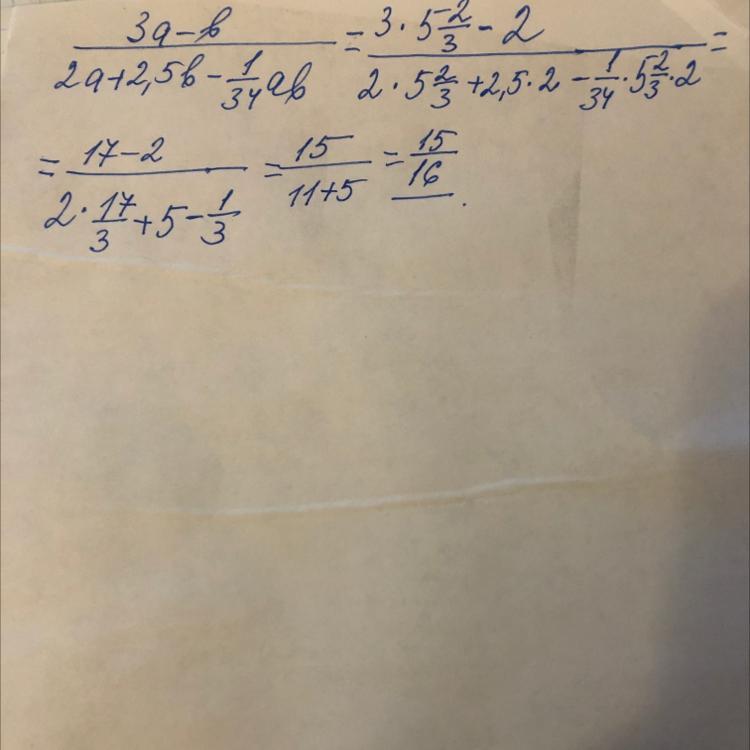 (3a-b)/(2a+2,5b-1/34ab) = (3·5 2/3-2)/(2·5 2/3+2,5·2-1/34·5 2/3·2) =
= (17-2)/(2·17/3+5-1/3) = 15/(11+5) = 15/16.